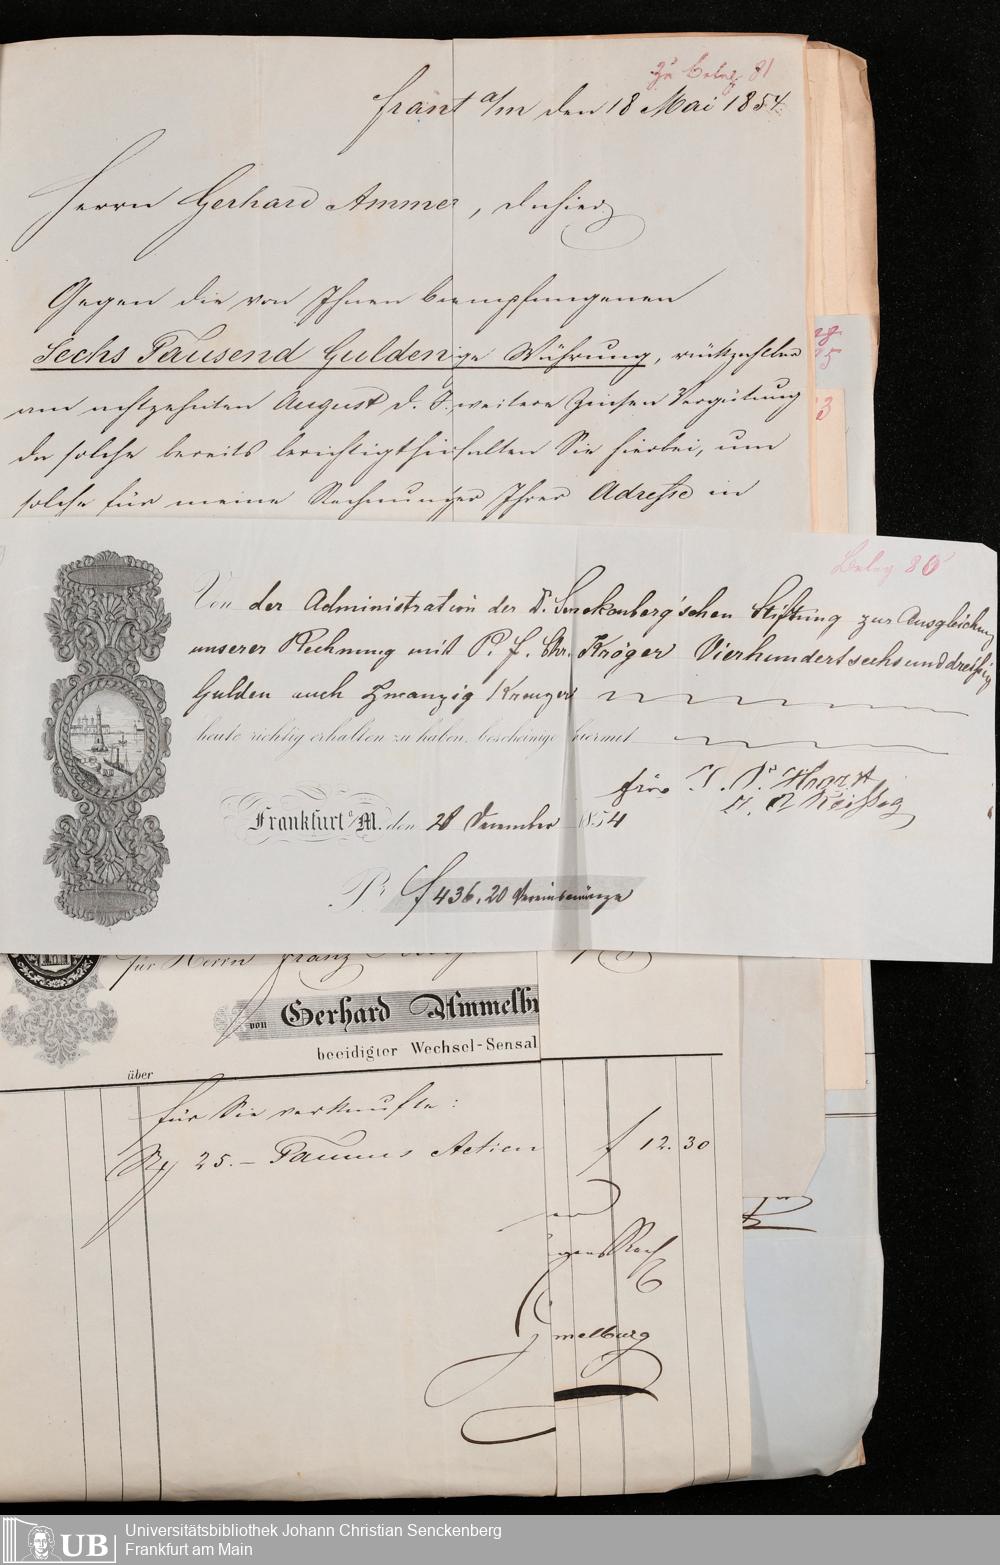 Zu Beleg 81
Frankt a/m den 18 Mai 1854.
Herrn Gerhard Ammel
Gegen die von Ihnen baarempfangenen
Sechs Tausend Gulden Währung, rückzahlbar
am achtzehnten August d. J. weitere Zinsen Vergütung
da solche bereits berichtigt Sie hierbei, um
solche für meine Rechnung Ihrer Adresse in
Beleg 80
Von der Administration der Dr. Senckenberg'schen Stiftung zur Ausgleichung
unserer Rechnung mit P. F. Chr. Kröger Vierhundertsechsunddreißig
Gulden auch Zwanzig Kreuzer
heute richtig erhalten zu haben, bescheinige hiermit
für
Frankfurt a/M. den 28 December 1854
Pr f 436.20 Vereinsmünze
für Herrn Franz
von Gerhard Ammelbu
beeidigter Wechsel-Sensal
über
Für Sie verkaufte:
25.- Taunus Actien f 12.30
melburg
UB Universitätsbibliothek Johann Christian Senckenberg
Frankfurt am Main